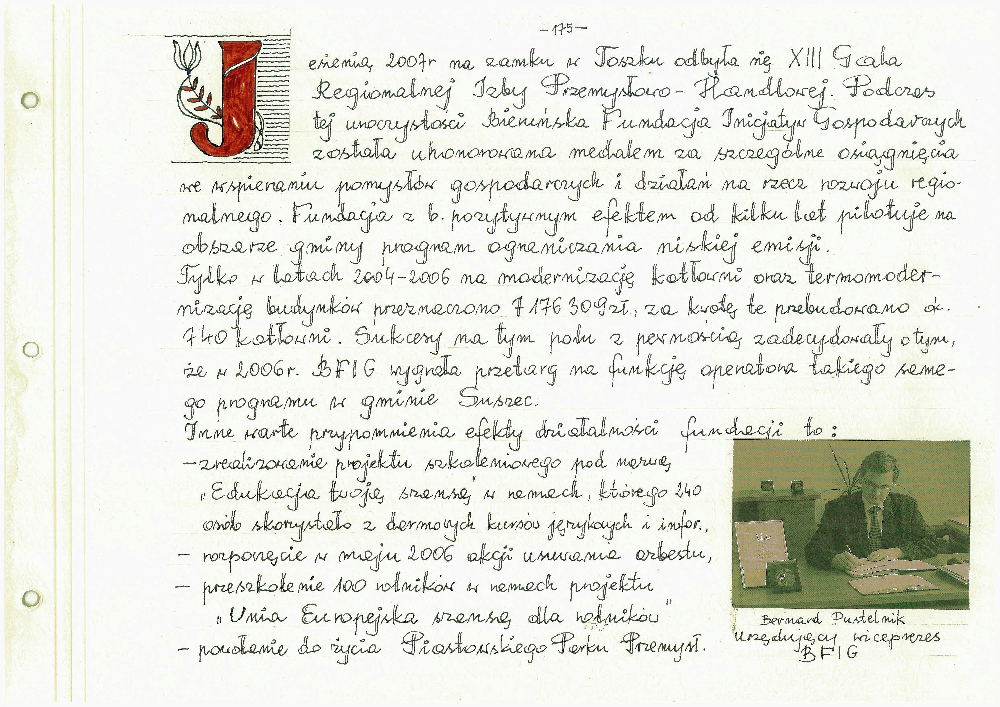 -175-
Jesienią 2007r na zamku w Toszku odbyła się XIII Gala
Regionalnej Izby Przemysłowo-Handlowej. Podczas
tej uroczystości Bieruńska Fundacja Inicjatyw Gospodarczych
została uhonorowana medalem za szczególne osiągnięcia
we wspieraniu pomysłów gospodarczych i działań na rzecz rozwoju regio-
nalnego. Fundacja z b. pozytywnym efektem od kilku lat pilotuje na
obszarze gminy program ograniczania niskiej emisji.
Tylko w latach 2004-2006 na modernizację kotłowni oraz termomoder-
nizację budynków przeznaczono 7 176 309zł, za kwotę te przebudowano ok.
740 kotłowni. Sukcesy na tym polu z pewnością zadecydowały o tym,
że w 2006r. BFIG wygrała przetarg na funkcję operatora takiego same-
go programu w gminie Suszec.
Inne warte przypomnienia efekty działalności fundacji to:
-zrealizowanie projektu szkoleniowego pod nazwą
„Edukacja twoją szansą" w ramach, którego 240
osób skorzystało z darmowych kursów językowych i infor.,
- rozpoczęcie w maju 2006 akcji usuwania azbestu,
- przeszkolenie 100 rolników w ramach projektu
„Unia Europejska szansą dla rolników"
- powołanie do życia Piastowskiego Parku Przemysł.
Bernard Pustelnik
urzędujący wiceprezes
BFIG